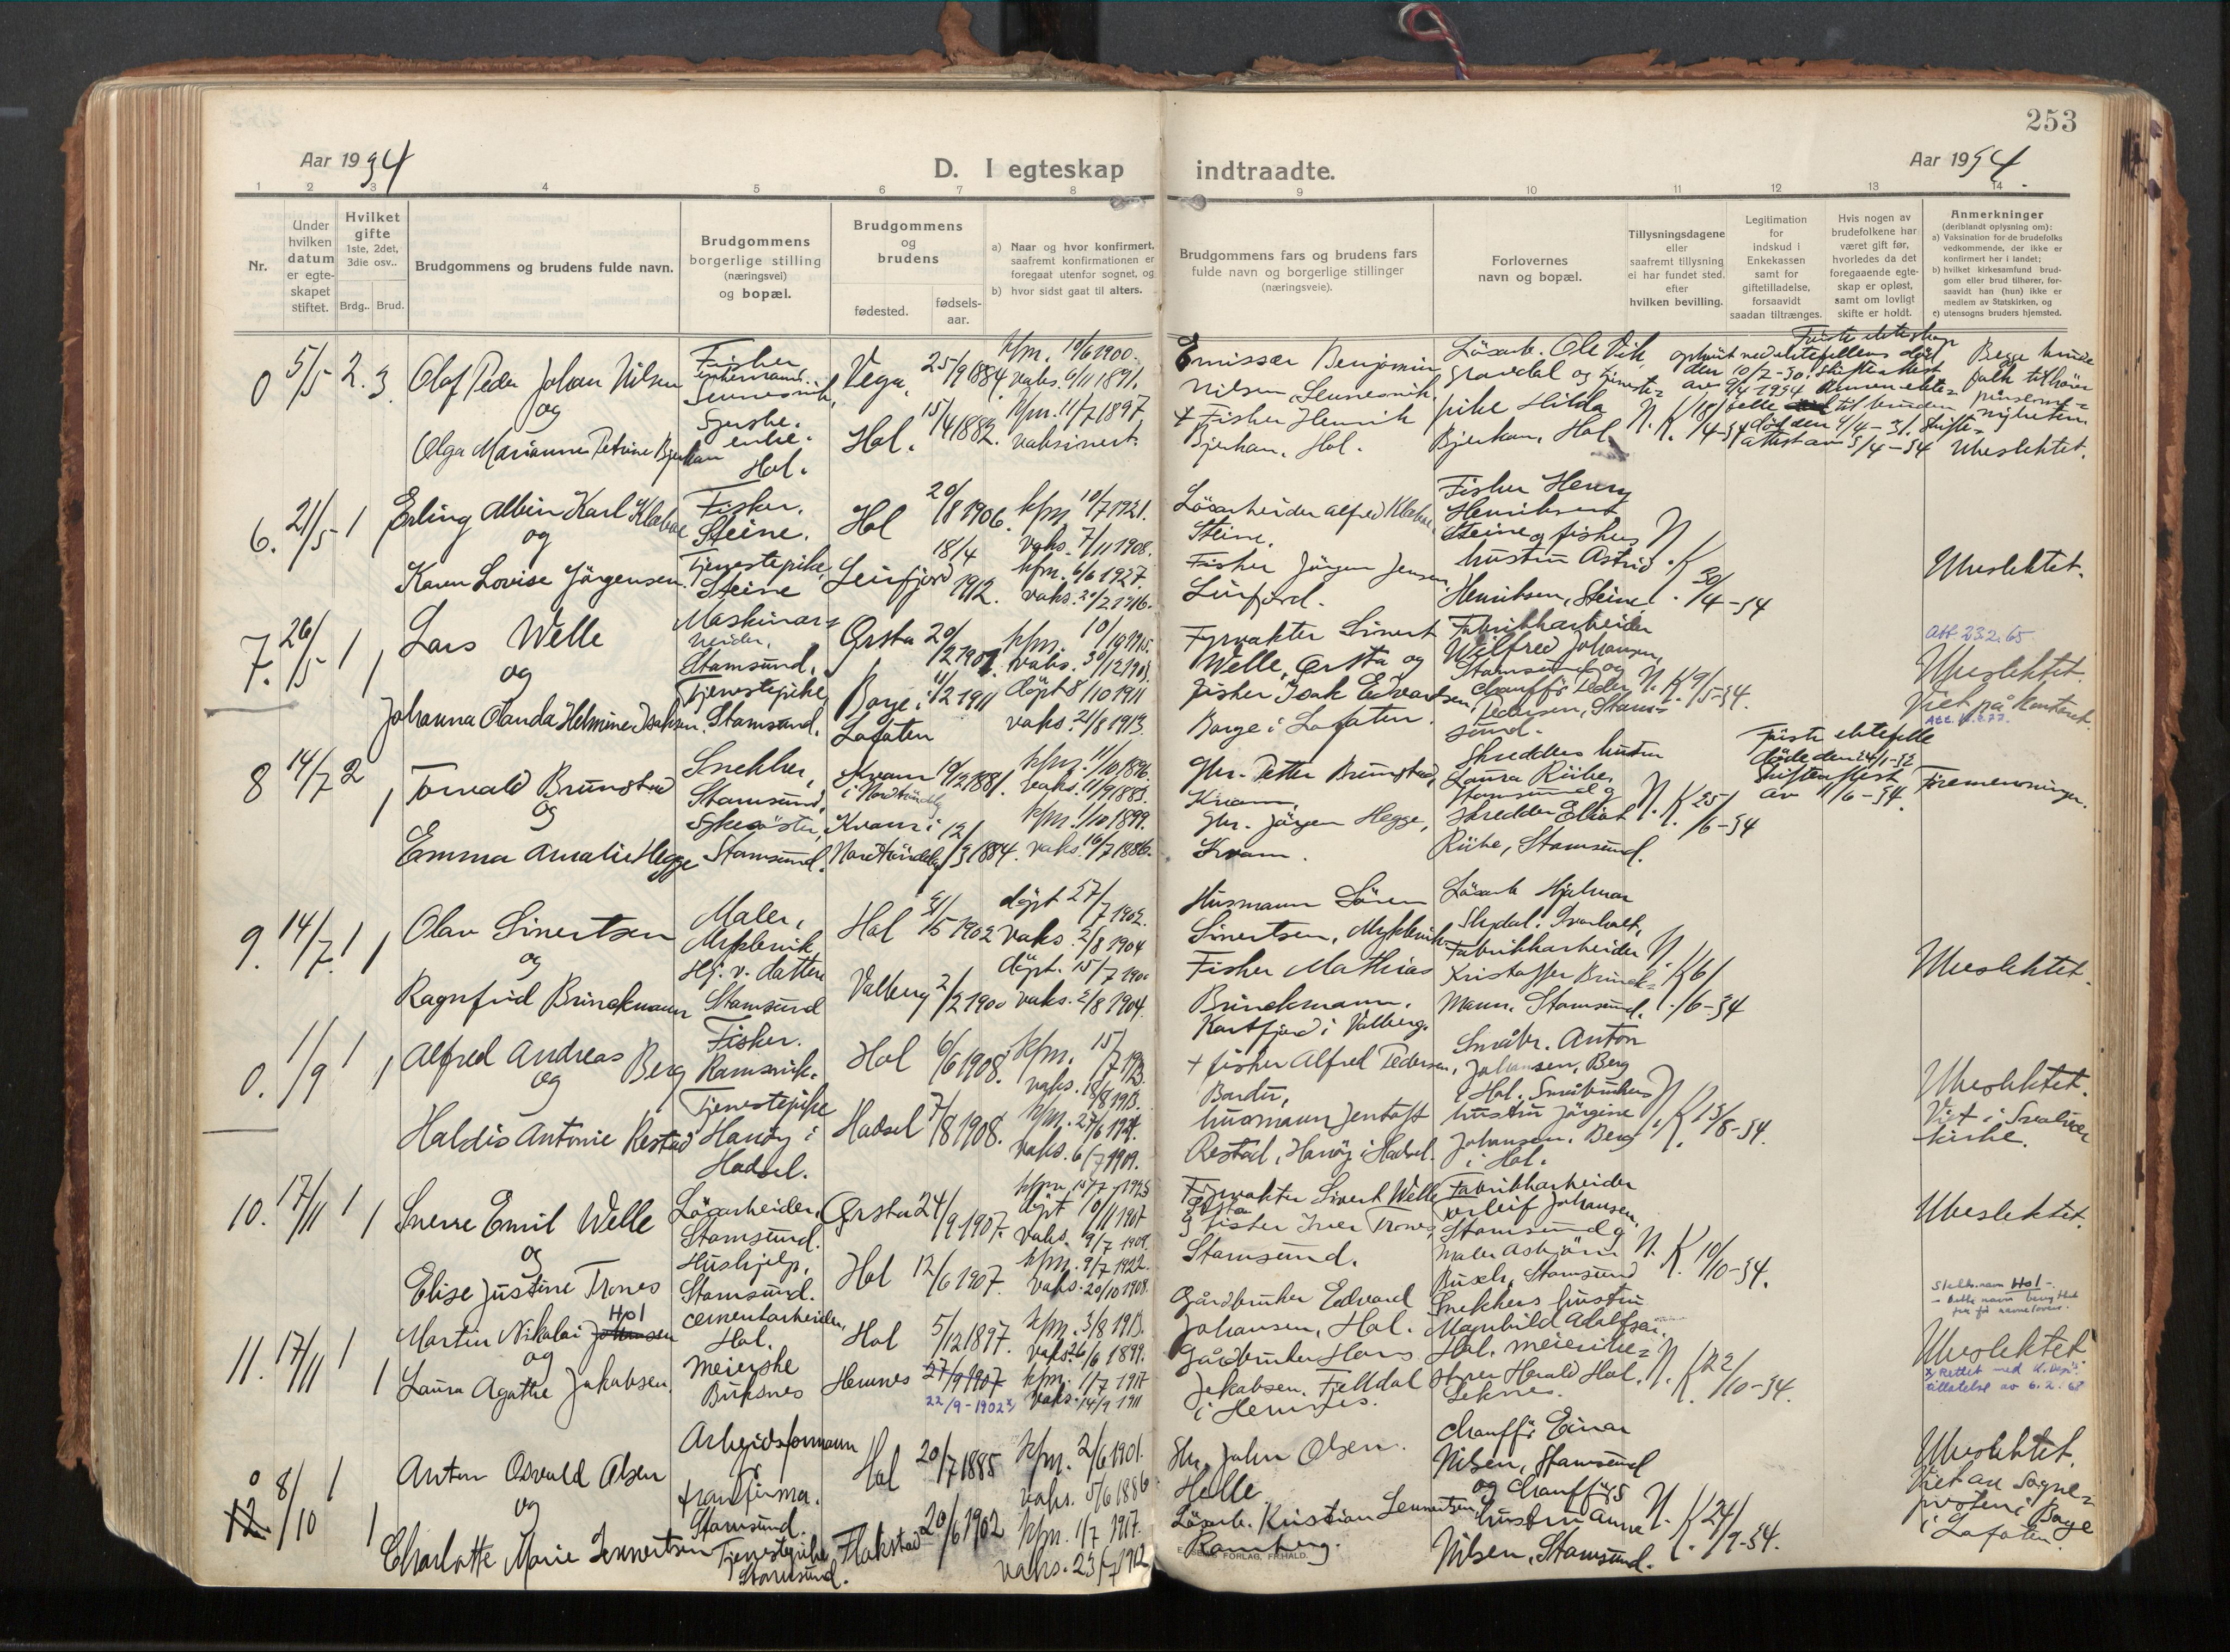 253
Aar 1934
D. I egteskap
indtraadte.
Aar 1934
1 2 3 4 5 6 7 8 9 10 11 12 13 14
Nr.
Under
hvilken
datum
er egte-
skapet
stiftet.
Hvilket
gifte
1ste, 2det,
3die osv..
Brdg.. Brud.
Brudgommens og brudens fulde navn.
Brudgommens
borgerlige stilling
(næringsvei)
og bopæl.
Brudgommens
og
brudens
fødested.
fødsels-
aar.
a) Naar og hvor konfirmert,
saafremt konfirmationen er
foregaat utenfor sognet, og
b) hvor sidst gaat til alters.
Brudgommens fars og brudens fars
fulde navn og borgerlige stillinger
(næringsveie).
Forlovernes
navn og bopæl.
Tillysningsdagene
eller
saafremt tillysning
ei har fundet sted.
efter
hvilken bevilling.
Legitimation
for
indskud i
Enkekassen
samt for
giftetilladelse,
forsaavidt
saadan tiltrænges.
Hvis nogen av
brudefolkene har
været gift før,
hvorledes da det
foregaaende egte-
skap er opløst,
samt om lovligt
skifte er holdt.
Anmerkninger
(deriblandt oplysning om):
a) Vaksination for de brudefolks
vedkommende, der ikke er
konfirmert her i landet;
b) hvilket kirkesamfund brud-
gom eller brud tilhører, for-
saavidt han (hun) ikke er
medlem av Statskirken, og
c) utensogns bruders hjemsted.
0 5/5 2. 3 Olaf Peder Johan Nilsen
og
Olga Marianne Petrine Bjerkan
Fisker
Sennesvik,
enke.
Hol.
Vega, 25/9 1884.
Hol. 15/4 1882.
kfm. 10/6 1900.
vaks. 6/11 1891.
kfm. 11/7 1897
vaksinert.
Emissær Benjamin
Nilsen, Sennesvik,
+ Fisker Henrik
Bjerkan, Hol.
Løsarb. Ole Vik,
Gravdal og tjeneste-
pike Hilda
Bjerkan, Hol
N. K. 18/4-34
Første ekteskap
ophørt ved ektefellens død
den 10/2-30. Skifteattest
av 9/4 1934.
attest av 5/4-34
Begge brude
folk tilhører
pinseme-
nigheten.
Ubeslektet.
6. 21/5 1 Erling Albin Karl Klæboe
og
Karen Lovise Jørgensen.
Fisker,
Steine.
Tjenestepike,
Steine
Hol 20/8 1906.
Leirfjord 18/4 1912.
kfm. 10/7 1921.
vaks. 7/11 1908.
kfm. 6/6 1927.
vaks. 20/2 1916.
Løsarbeider Alfred Klæboe,
Steine.
Fisker Jørgen Jensen,
Leirfjord.
Fisker Henry
Henriksen
Steine og fiskers
hustru Astrid
Henriksen, Steine.
N. K. 30/4-34
Ubeslektet.
7. 26/5 1 1 Lars Welle
og
Johanna Olanda Helmine Isaksen.
Maskinar-
beider,
Stamsund.
Tjenestepike
Stamsund.
Ørsta 20/2 1901.
Borge i 11/2 1911
Lofoten
kfm. 10/10 1915.
vaks. 30/12 1903.
døpt 8/10 1911
vaks. 21/8 1913.
Fyrvakter Sivert
Welle, Ørsta og
fisker Isak Edvardsen,
Borge i Lofoten.
Fabrikkarbeider
Wilfred Johansen,
Stamsund og
chauffør Peder
Pedersen, Stam-
sund.
N. K. 9/5-34.
Att. 23.2.65
Ubeslektet.
Viet på kontoret.
8 14/7 2 1 Torvald Brunstad
og
Emma Amalie Hegge
Snekker,
Stamsund,
Sykesøster,
Stamsund.
Kvam 10/12 1881.
i Nordtrøndelag
Kvam i 12/3 1884.
Nordtrøndelag
kfm. 11/10 1896.
vaks. 11/9 1883.
kfm. 1/10 1899.
vaks. 16/7 1886.
Gbr. Petter Brunstad,
Kvam.
Gbr. Jørgen Hegge,
Kvam.
Skredders hustru
Laura Riibe,
Stamsund og
skredder Eliot
Riibe, Stamsund.
N. K. 25/6-34
Første ektefelle
døde den 24/1-32
Skifteattest
av 11/6-34.
Firemenninger.
9. 14/7. 1 1 Olav Sivertsen
og
Ragnfrid Brinckmann
Maler,
Myklevik
Hj. v. datter
Stamsund
Hol 31/5 1902
Valberg 2/2 1900
døpt 27/7 1902.
vaks. 2/8 1904
døpt. 15/7 1900
vaks. 2/8 1904.
Husmann Søren
Sivertsen, Myklevik.
Fisker Mathias
Brinckmann,
Kartfjord i Valberg.
Løsarb. Hjalmar
Skydal, Svarholt,
Fabrikkarbeider
Kristoffer Brinck-
mann, Stamsund.
N. K. 6/6-34
Ubeslektet.
0. 1/9 1 1 Alfred Andreas Berg
og
Haldis Antonie Restad
Fisker.
Ramsvik.
Tjenestepike
Hanøy i
Hadsel.
Hol 6/6 1908.
Hadsel 7/8 1908.
kfm. 15/7 1923.
vaks. 18/8 1913.
kfm. 27/6 1924.
vaks. 6/7 1909.
+ fisker Alfred Pedersen,
husmann Jentoft
Restad, Hanøy i Hadsel.
Småbr. Anton
Johansen, Berg
i Hol. Småbrukers
hustru Jørgine
Johansen, Berg
i Hol.
N. K. 13/8-34.
Ubeslektet.
Viet i Svolvær
kirke.
10. 17/11 1 1 Sverre Emil Welle
og
Elise Justine Trones
Løsarbeider,
Stamsund.
Hushjelp,
Stamsund.
Ørsta 24/9 1907.
Hol 12/6 1907.
kfm. 15/7 1923
døpt 10/11 1907
vaks. 9/7 1909.
kfm. 9/7 1922.
vaks. 20/10 1908.
Fyrvakter Sivert Welle
Ørsta
og fisker Iver Trones,
Stamsund.
Fabrikkarbeider
Torleif Johansen,
Stamsund og
maler Asbjørn
Busch, Stamsund
N. K. 10/10-34.
Ubeslektet.
11. 17/11 1 1 Martin Nikolai Johansen Hol
og
Laura Agathe Jakobsen.
cementarbeider,
Hol.
Meierske
Buksnes
Hol 5/12 1897.
Hemnes 27/9 1907
22/9-1902 x)
kfm. 3/8 1913.
vaks. 26/6 1899.
kfm. 1/7 1917
vaks. 14/9 1911
Gårdbruker Edvard
Johansen, Hol.
Gårdbruker Hans
Jakobsen, Fjelldal
i Hemnes.
Snekkers hustru
Magnhild Adolfsen,
Hol, meieribe-
styrer Harald Hol,
Leknes.
N. K. 22/10-34.
Slektsnavn Hol -
- dette navn benyttet
før navneloven.
Ubeslektet.
x) Rettet med K. Dep's
tillatelse av 6.2.68
0 12 8/10 1 1 Anton Osvald Olsen
og
Charlotte Marie Lennertsen
Arbeidsformann
for
tranfirma.
Stamsund.
Tjenestepike
Stamsund.
Hol 20/7 1885
Flakstad 20/6 1902
kfm. 2/6 1901.
vaks. 5/6 1886
kfm. 1/7 1917.
vaks. 23/7 1912
Gbr. John Olsen.
Helle
Løsarb. Kristian Lennertsen,
Ramberg.
E. SEMS FORLAG, FR.HALD.
Chauffør Einar
Nilsen, Stamsund
og Chaufførs
hustru Anna
Nilsen, Stamsund.
N. K. 24/9-34.
Ubeslektet.
Viet av Sogne-
presten i Borge
i Lofoten.